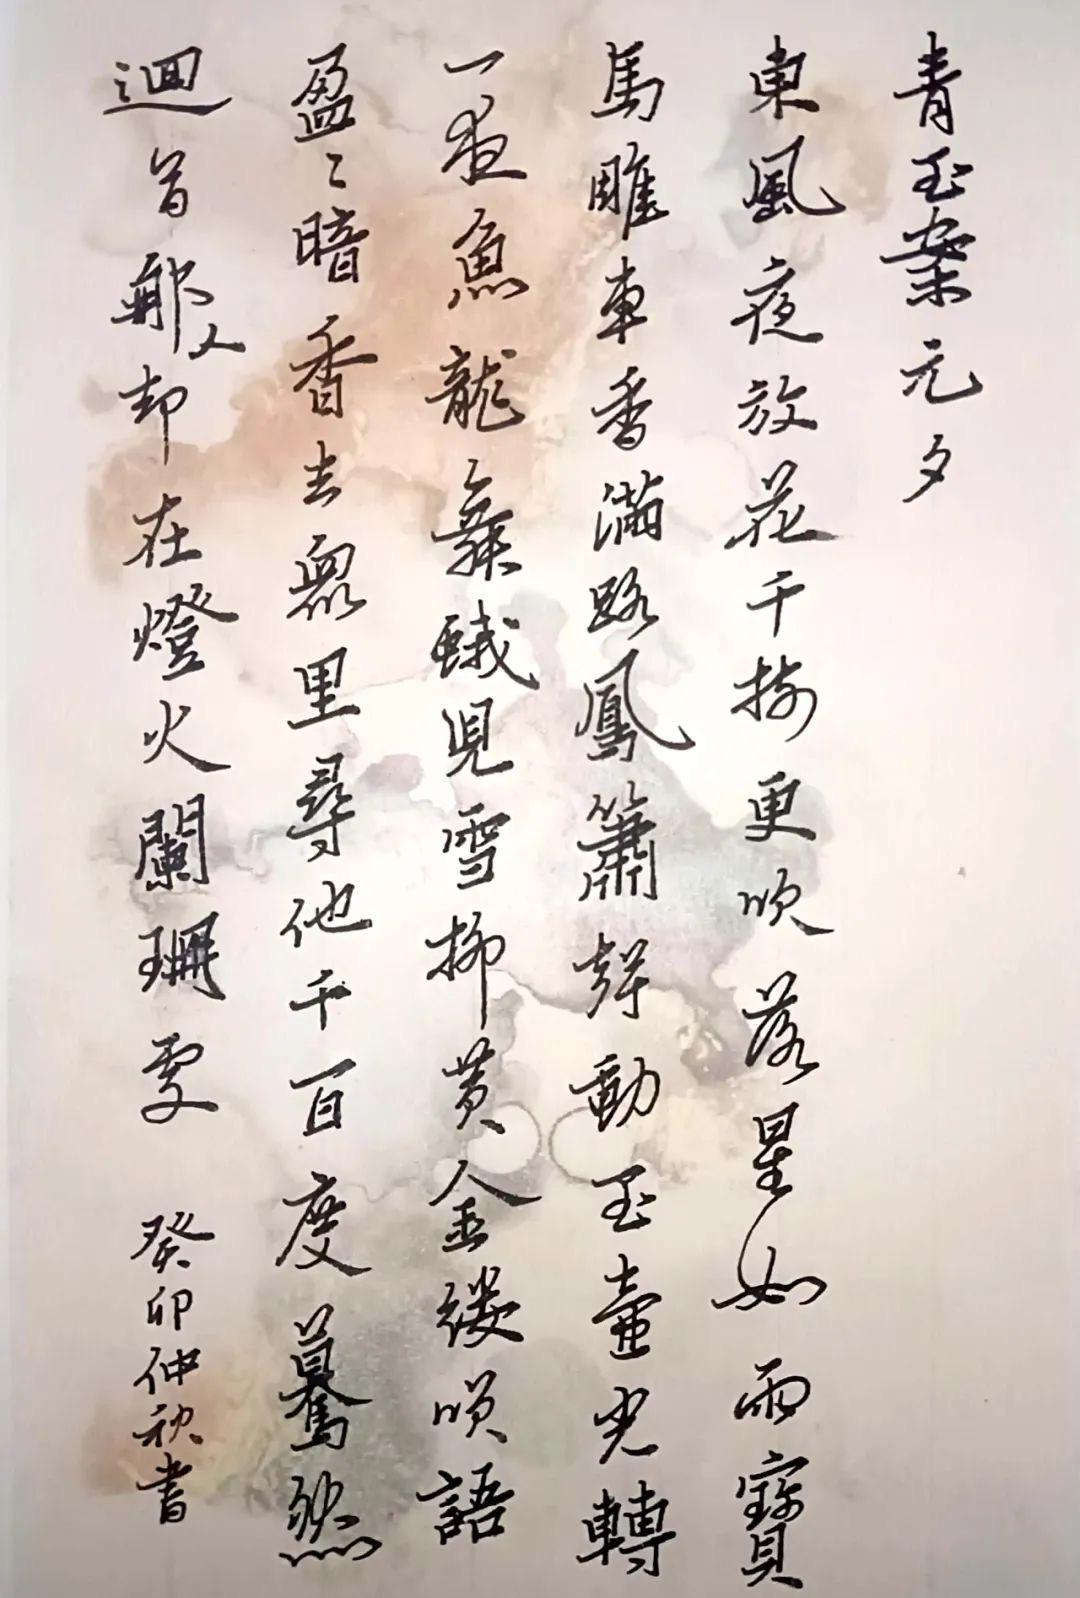 青玉案元夕
東風夜放花千樹更吹落星如雨寶
馬雕車香滿路鳳簫聲動玉壺光轉
一夜魚龍舞蛾兒雪柳黃金縷唄語
盈〻暗香去衆里尋他千百度驀然
迴首那人却在燈火闌珊處
癸卯仲秋書